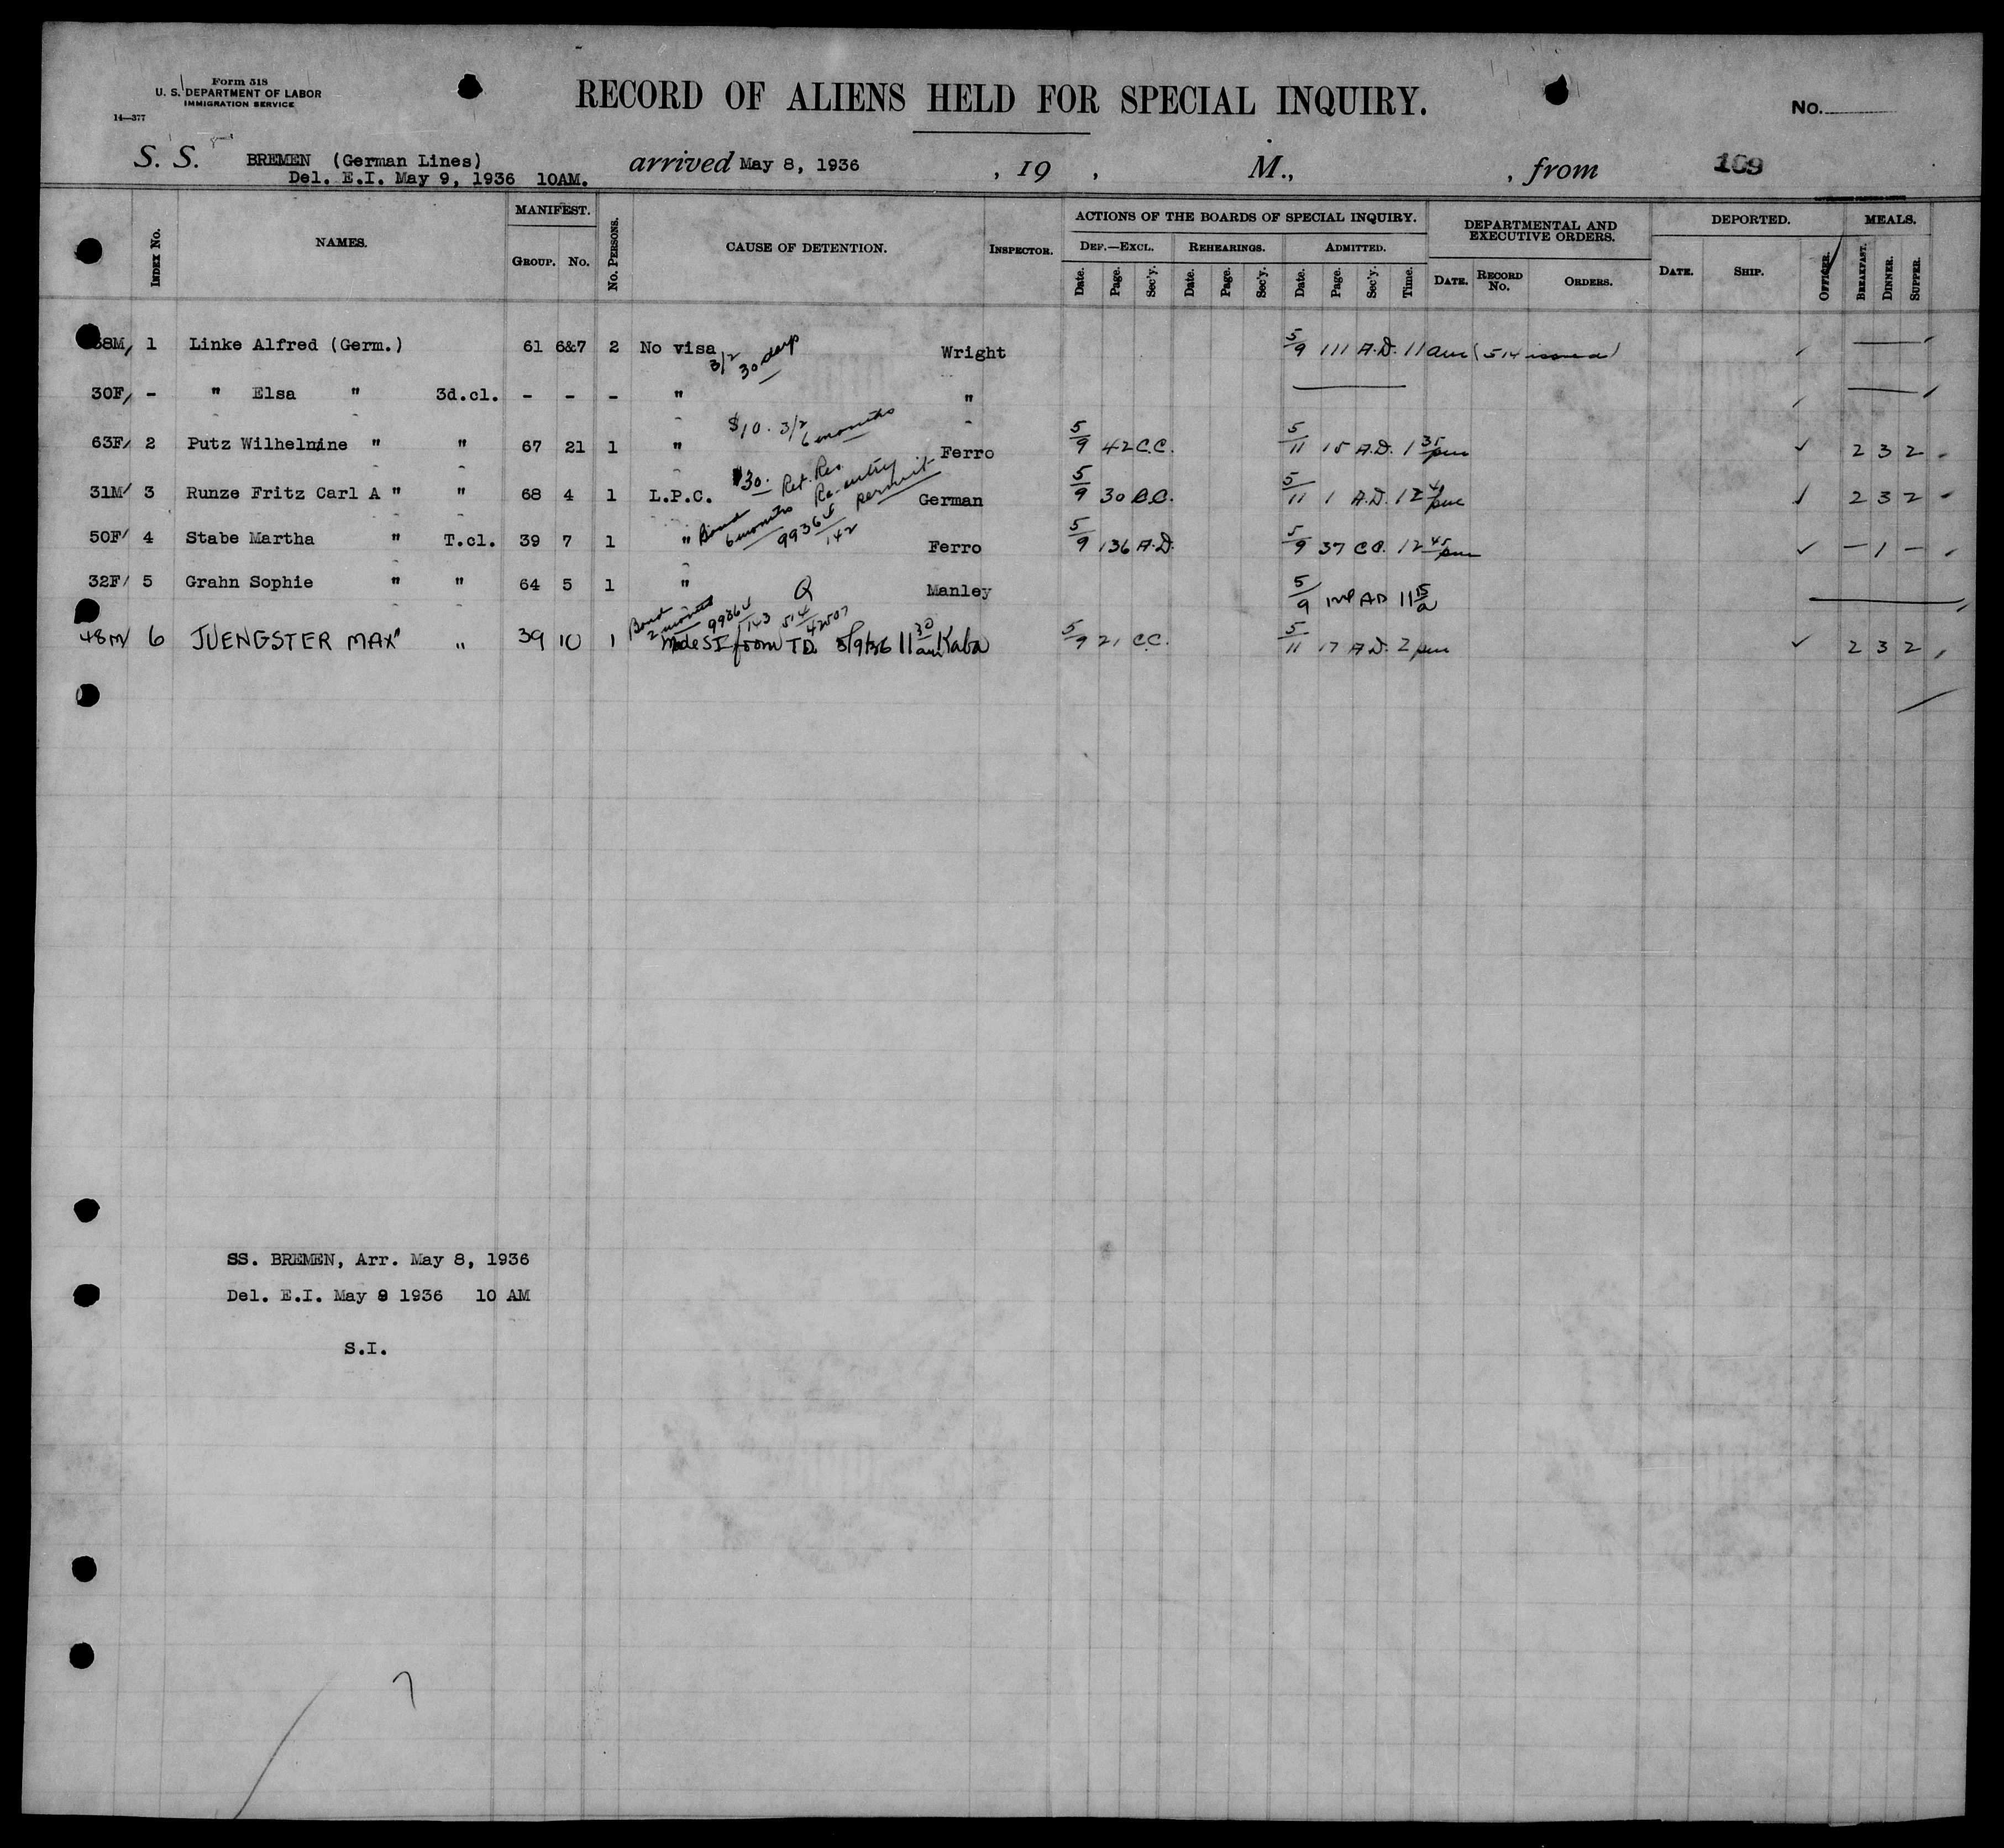 Form 518
U. S. DEPARTMENT OF LABOR
IMMIGRATION SERVICE
14—377
RECORD OF ALIENS HELD FOR SPECIAL INQUIRY.
No.
S. S. BREMEN (German Lines) arrived May 8, 1936 , 19 , M., , from 169
Del. E.I. May 9, 1936 10AM.
INDEX No. NAMES. MANIFEST. GROUP. No. No. PERSONS. CAUSE OF DETENTION. INSPECTOR. ACTIONS OF THE BOARDS OF SPECIAL INQUIRY. DEPARTMENTAL AND EXECUTIVE ORDERS. DEPORTED. MEALS.
DEF.—EXCL. REHEARINGS. ADMITTED.
Date. Page. Sec'y. Date. Page. Sec'y. Date. Page. Sec'y. Time. DATE. RECORD No. ORDERS. DATE. SHIP. OFFICER. BREAKFAST. DINNER. SUPPER.
38M, 1 Linke Alfred (Germ.) 61 6&7 2 No visa 3/2 30 days Wright 5/9 111 A.D. 11 am (514 issued)
30F, - " Elsa " 3d.cl. - - - " "
63F, 2 Putz Wilhelmine " " 67 21 1 " $10. 3/2 6 months Ferro 5/9 42 C.C. 5/11 15 A.D. 1 35 pm ✓ 2 3 2
31M 3 Runze Fritz Carl A " " 68 4 1 L.P.C. $30. Ret. Res. Re-entry permit German 5/9 30 B.C. 5/11 1 A.D. 12 pm ✓ 2 3 2
50F 4 Stabe Martha " T.cl. 39 7 1 " Bond 6 months 99364/142 Ferro 5/9 136 A.D. 5/9 37 C.C. 12 45 pm ✓ — 1 —
32F 5 Grahn Sophie " " 64 5 1 " Q Manley 5/9 AD 11 15 a
Bond 2 months 99364/143 514
48M 6 JUENGSTER MAX " " 39 10 1 Made SI from TD. 5/9/36 11 30 am Kaba 5/9 21 C.C. 5/11 17 A.D. 2 pm ✓ 2 3 2
SS. BREMEN, Arr. May 8, 1936
Del. E.I. May 9 1936 10 AM
S.I.